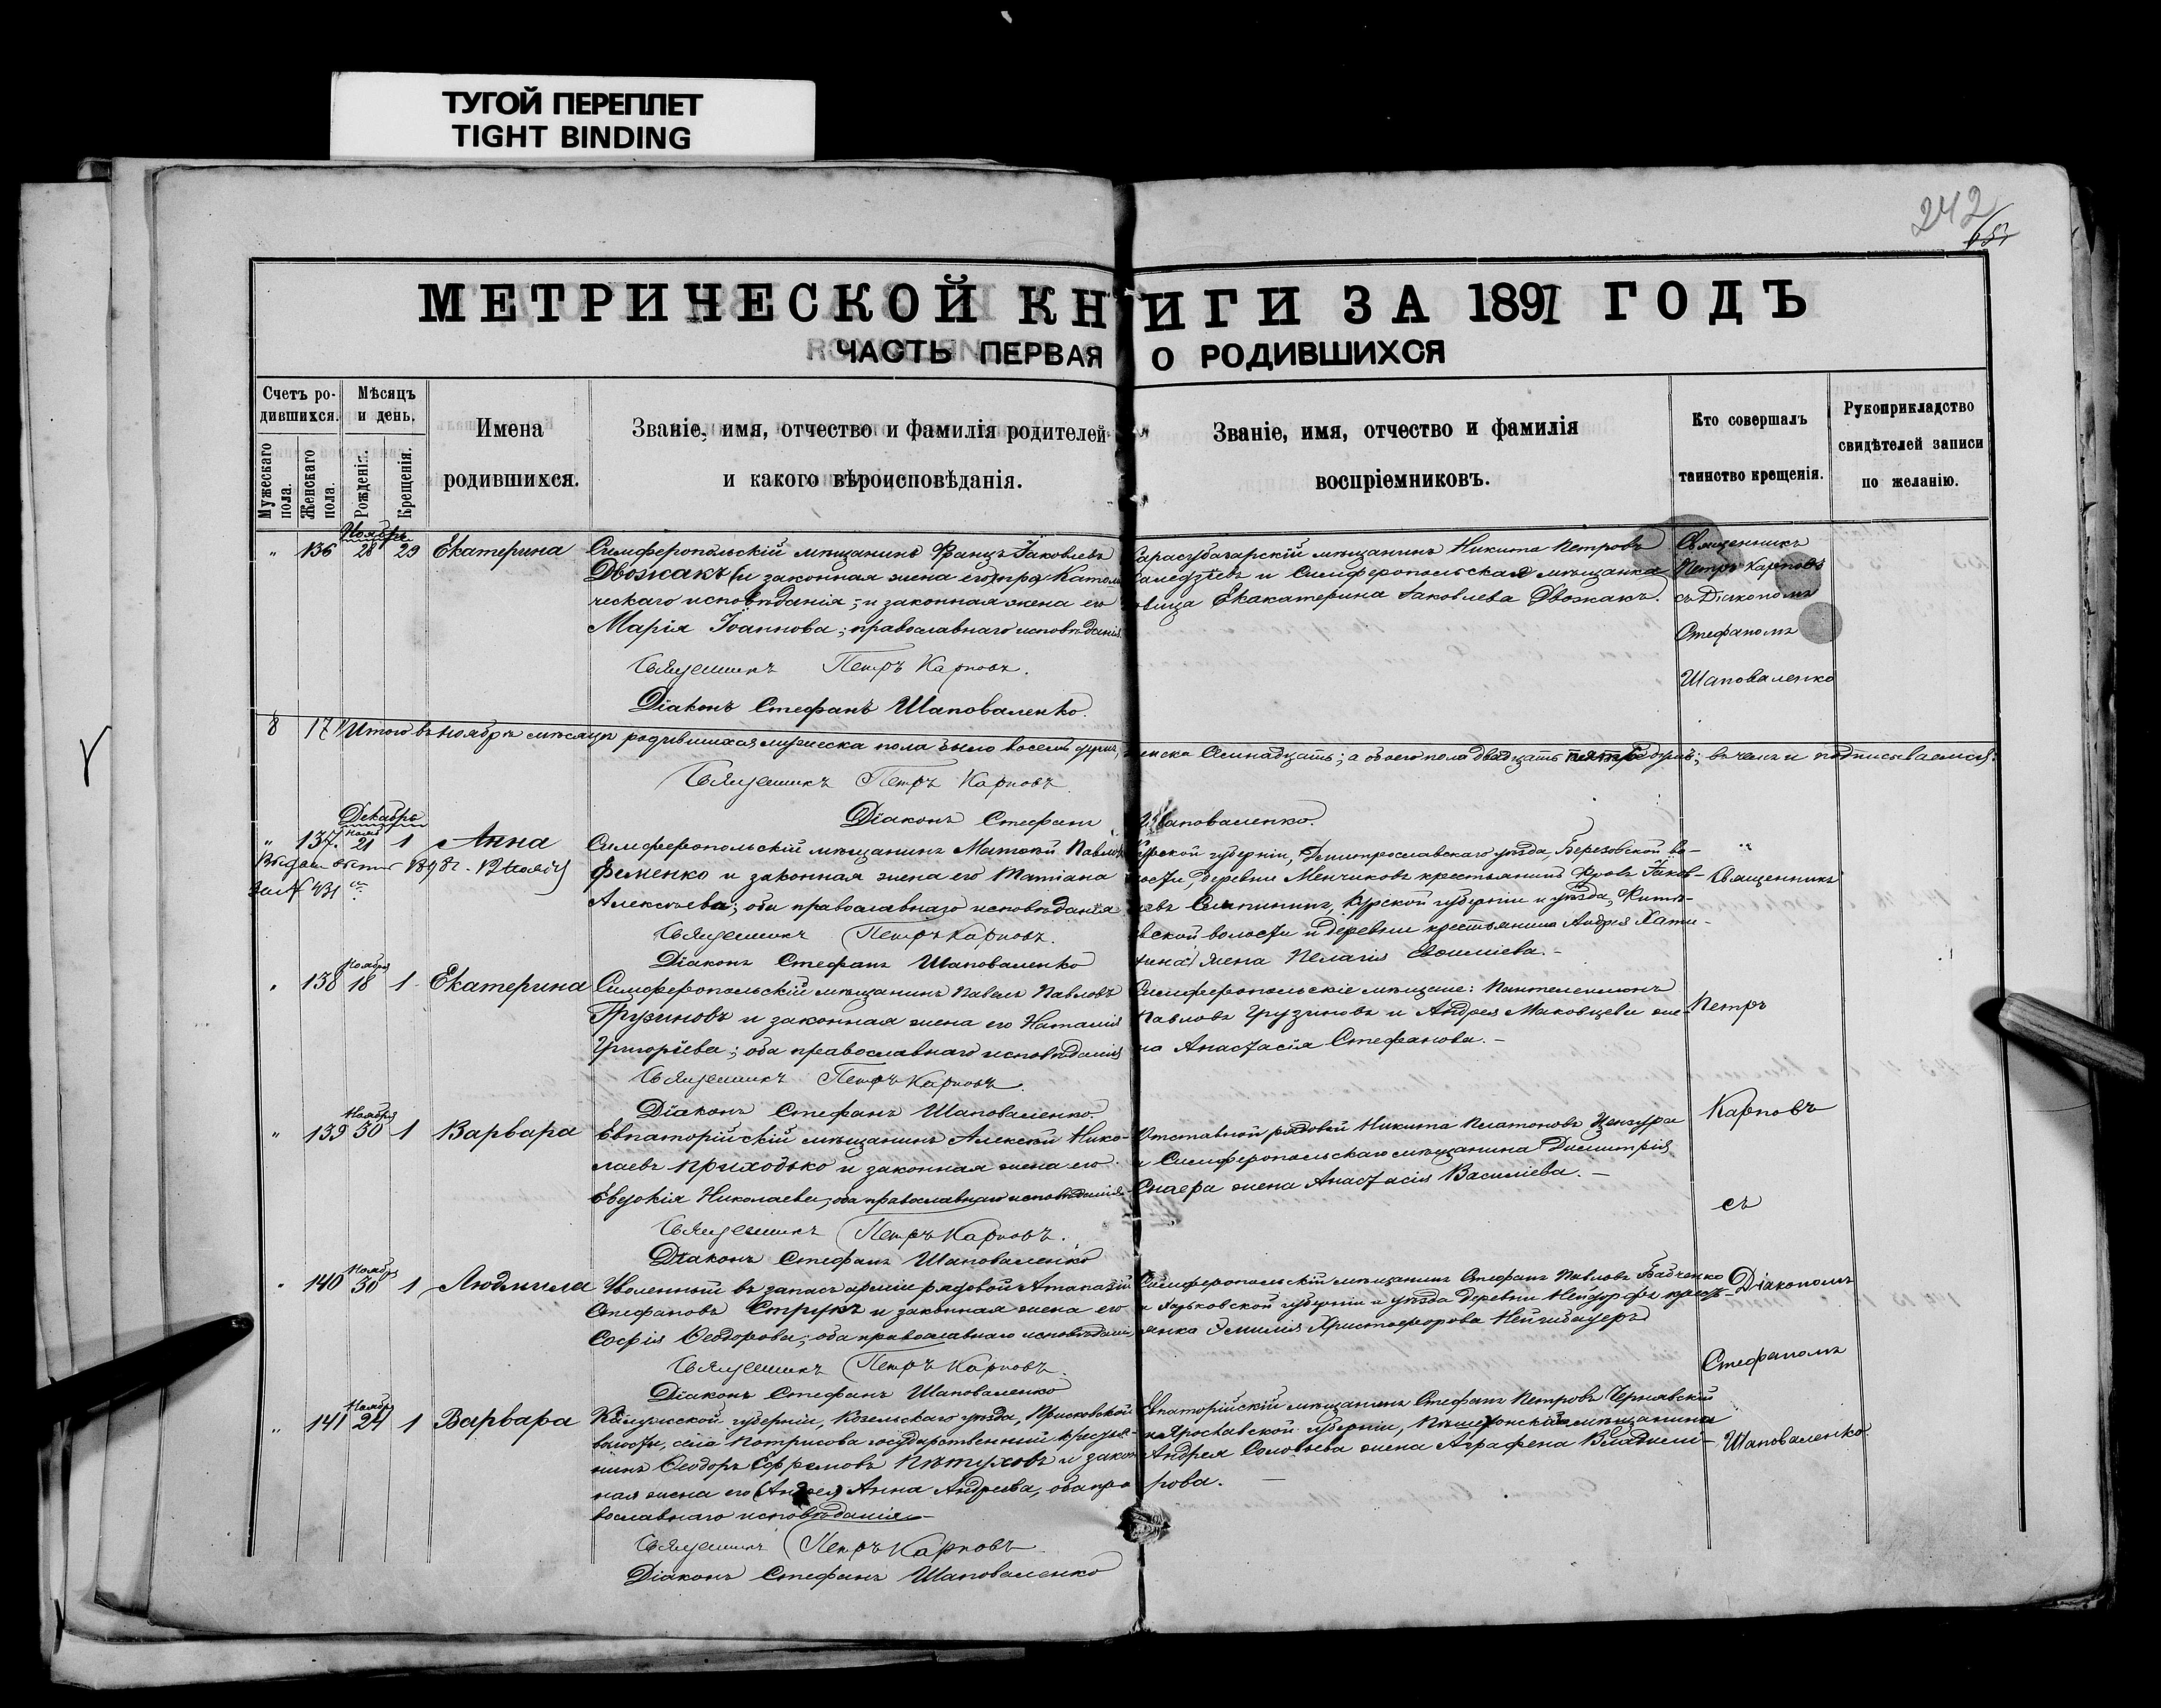 ТУГОЙ ПЕРЕПЛЕТ
TIGHT BINDING
242
МЕТРИЧЕСКОЙ КНИГИ ЗА 1891 ГОДЪ
ЧАСТЬ ПЕРВАЯ О РОДИВШИХСЯ
Счетъ ро-
дившихся.
Мужескаго
пола.
Женскаго
пола.
Мѣсяцъ
и день.
Рожденія.
Крещенія.
Имена
родившихся.
Званіе, имя, отчество и фамилія родителей
и какого вѣроисповѣданія.
Званіе, имя, отчество и фамилія
воспріемниковъ.
Кто совершалъ
таинство крещенія.
Рукоприкладство
свидѣтелей записи
по желанію.
Ноябрь
" 136 28 29 Екатерина
Симферопольскій мѣщанинъ Францъ Іаковлевъ
Двожакъ (и законная жена его)
ческаго исповѣданія; и законная жена его
Марія Іоаннова; православнаго исповѣданія
Священникъ Петръ Карповъ.
Діаконъ Стефанъ Шаповаленко.
Карасубазарскій мѣщанинъ Никита Петровъ
и Симферопольская мѣщанка
Екакатерина Іаковлева Двожакъ.
Священникъ
Петръ Карповъ
съ Діакономъ
Стефаномъ
Шаповаленко
8 17 Итого въ ноябрѣ мѣсяцѣ родившихся мужеска пола было восемь душъ, женска семнадцать; а обоего пола двадцать пять душъ; въ чемъ и подписываемся:
Священникъ Петръ Карповъ.
Діаконъ Стефанъ Шаповаленко.
Декабрь
" 137. Нояб 21 1 Анна
1898 г.
за № 431
Симферопольскій мѣщанинъ Матѳей Павловъ
Фененко и законная жена его Татіана
Алексѣева; оба православнаго исповѣданія
Священникъ Петръ Карповъ.
Діаконъ Стефанъ Шаповаленко
Курской губерніи, Дмитрославскаго уѣзда, Березовской во-
лости, деревни Менчиковъ крестьянинъ Іаков-
левъ Курской губерніи и уѣзда,
вской волости и деревни крестьянина Андрея
жена Пелагія Василіева. -
138 Ноября 18 1 Екатерина
Симферопольскій мѣщанинъ Павелъ Павловъ
Грузиновъ и законная жена его Наталія
Григорьева; оба православнаго исповѣданія
Священникъ Петръ Карповъ
Діаконъ Стефанъ Шаповаленко.
Симферопольскіе мѣщане: Пантелеимонъ
Павловъ Грузиновъ и Андрея Маковцева же-
на Анастасія Стефанова. -
" 139 Ноября 30 1 Варвара
Евпаторійскій мѣщанинъ Алексѣй Нико-
лаевъ Приходько и законная жена его
Евдокія Николаева; оба православнаго исповѣданія
Священникъ Петръ Карповъ.
Діаконъ Стефанъ Шаповаленко
Отставной рядовой Никита Платоновъ Цензура
и Симферопольскаго мѣщанина Димитрія
жена Анастасія Василіева. -
140 Ноября 30 1 Людмила
Уволенный въ запасъ арміи рядовой Атанасій
Стефановъ Струкъ и законная жена его
Софія Ѳеодорова; оба православнаго исповѣданія
Священникъ Петръ Карповъ.
Діаконъ Стефанъ Шаповаленко
Симферопольскій мѣщанинъ Стефанъ Павловъ Бабченко
и Харьковской губерніи и уѣзда деревни Нейдорфа крест-
янка Эмилія Христофорова
" 141 Ноября 24 1 Варвара
Калужской губерніи, Козельскаго уѣзда, Прысковской
волости, села государственный крестья-
нинъ Ѳеодоръ Ефремовъ Пѣтуховъ и закон-
ная жена его (Андрея) Анна Андреева, оба пра-
вославнаго исповѣданія
Священникъ Петръ Карповъ.
Діаконъ Стефанъ Шаповаленко
Евпаторійскій мѣщанинъ Стефанъ Петровъ Чернявскій
и Ярославской губерніи, Пошехонскаго мѣщанина
Андрея Соловьева жена Аграфена Владимі-
рова. -
Священникъ
Петръ
Карповъ
съ
Діакономъ
Стефаномъ
Шаповаленко